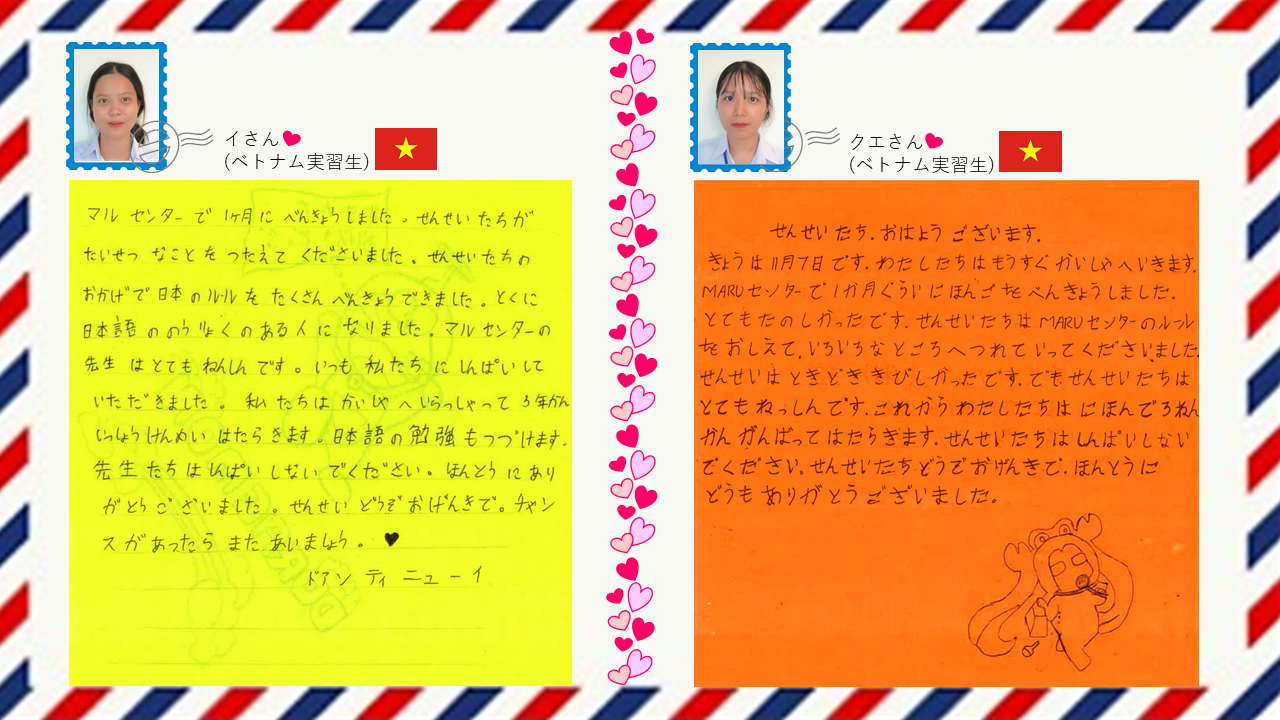 イさん
(ベトナム実習生)
マル センター で 1ヶ月 に べんきょうしました。せんせい たちが
たいせつ なこと を つたえて くださいました。せんせいたちの
おかげで 日本 のルール を たくさん べんきょうできました。とくに
日本語 ののうりょくのある人 に なりました。マル センターの
先生 は とても ねんしん です。いつも 私たち に しんぱいして
いただ きました。 私 たちは かいしゃ へ いらっしゃって 3年かん
いっしょうけんめい はたら きます。日本語の勉強 もつづけます。
先生 たち は しんぱい しない でください。ほんとう に あり
がとう ご ざいました。せんせい どうぞ おげんきで。チャン
ス が あったら また あいましょう。
ドアン ティ ニュー イ
クエさん
(ベトナム実習生)
せんせい たち、おはよう ございます。
きょう は 11月7日 です。わたしたちは もうすぐ かいしゃ へ いきます。
MARUセンターで 1か月 ぐらい にほんご を べんきょうしました。
とてもたのしかったです。せんせいたちは MARUセンターのルール
を おしえて、いろいろな ところ へつれて いってくださいました。
せんせいは ときどき きびしかったです。でもせんせいたちは
とてもねっしんです。これから わたしたちは にほんで3ねん
かん がんばって はたらきます。せんせいたちは しんぱいしない
でください。せんせいたちどうぞおげんきで。ほんとうに
どうも ありがとう ございました。